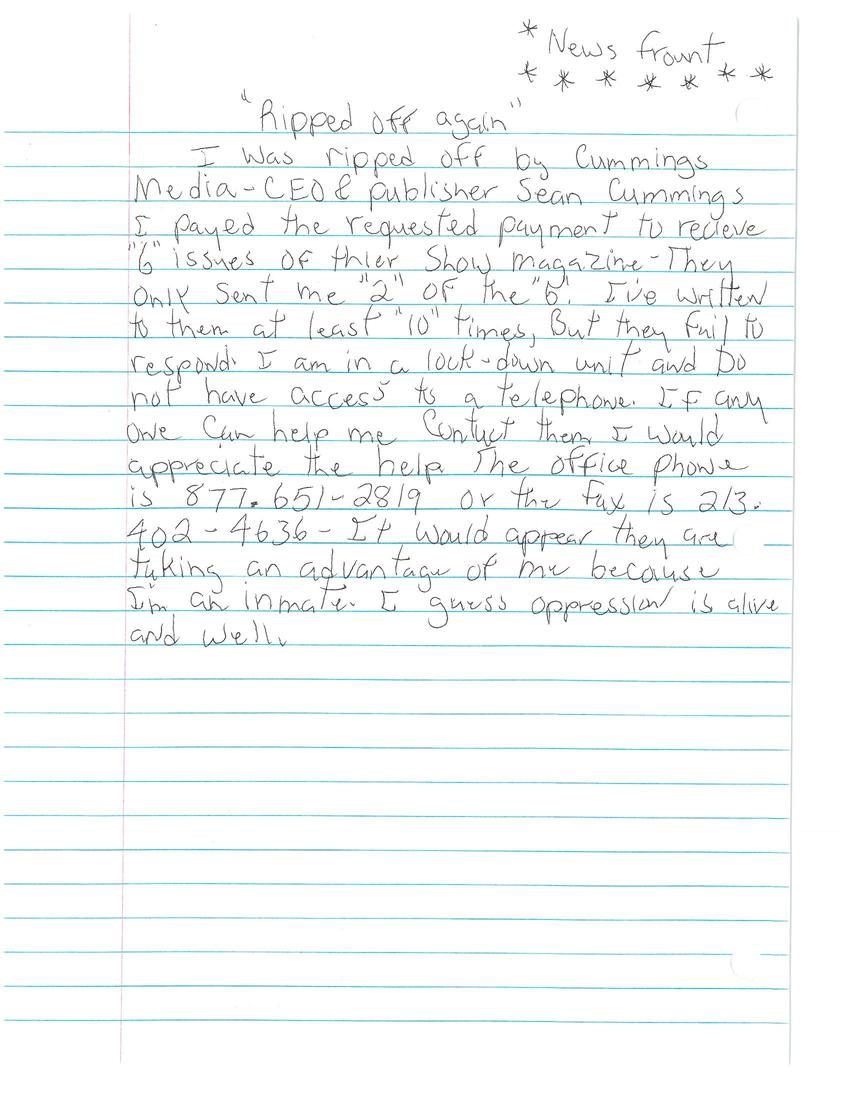 * News frount
* * * * * * *
"Ripped off again"
I was ripped off by Cummings
Media-CEO & publisher Sean Cummings
I payed the requested payment to recieve
"6" issues of thier Show magazine-They
only sent me "2" of the "6". I've written
to them at least "10" times, But they fail to
respond. I am in a lock-down unit and Do
not have access to a telephone. If any
one can help me contact them I would
appreciate the help. The office phone
is 877.651-2819 or the fax is 213.
402-4636- It would appear they are
taking an advantage of me because
I'm an inmate. I guess oppression is alive
and well.